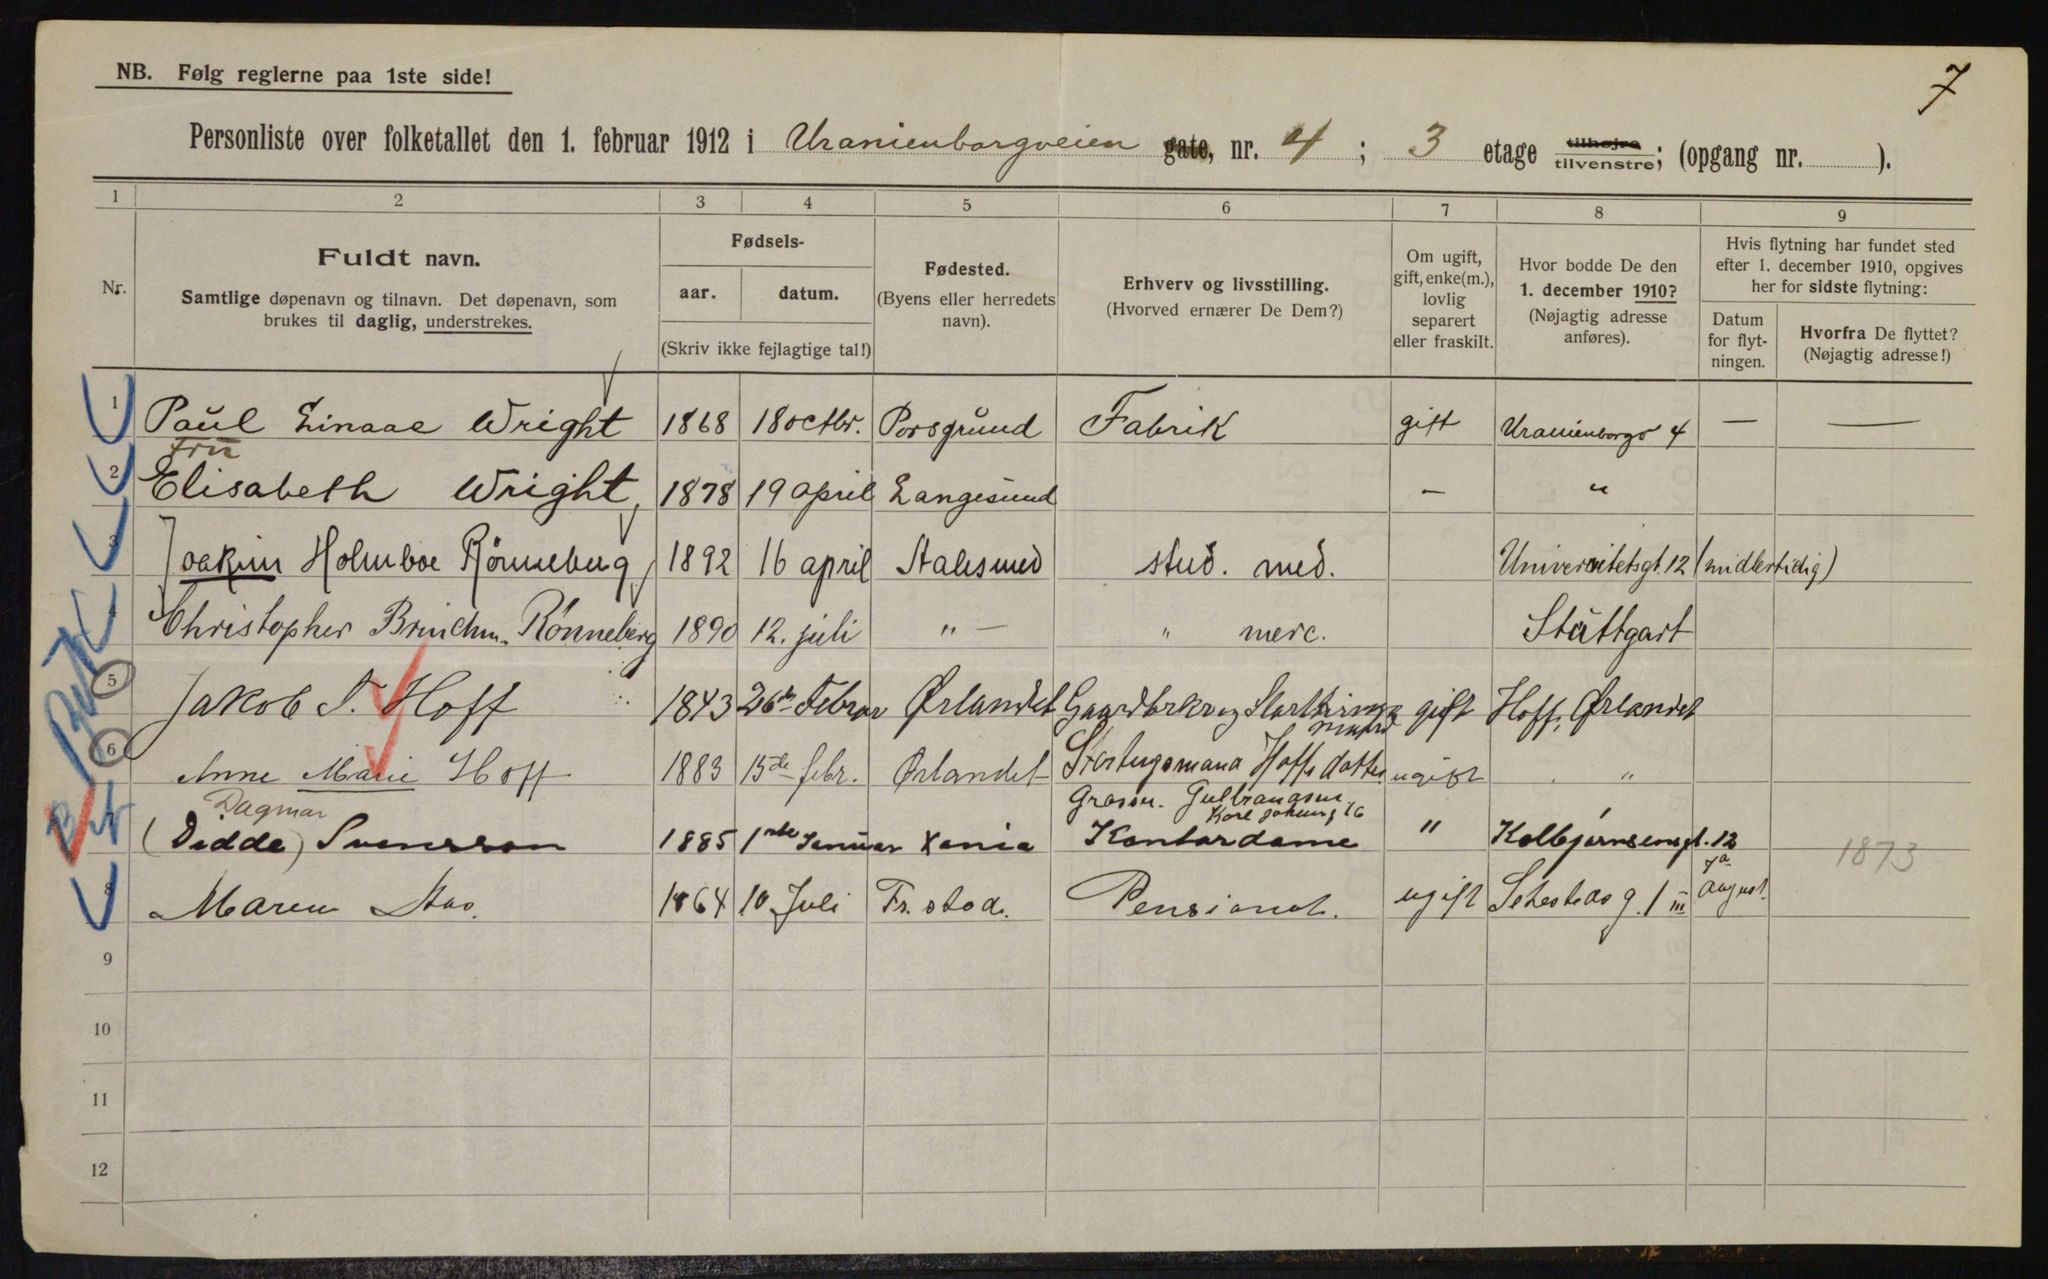 7
NB. Følg reglerne paa 1ste side!
Personliste over folketallet den 1. februar 1912 i Uranienborgveien gate, nr. 4 ; 3 etage tilhøjre tilvenstre; (opgang nr. ).
1 2 3 4 5 6 7 8 9
Nr.
Fuldt navn.
Samtlige døpenavn og tilnavn. Det døpenavn, som
brukes til daglig, understrekes.
Fødsels-
aar. datum.
(Skriv ikke fejlagtige tal!)
Fødested.
(Byens eller herredets
navn).
Erhverv og livsstilling.
(Hvorved ernærer De Dem?)
Om ugift,
gift, enke(m.),
lovlig
separert
eller fraskilt.
Hvor bodde De den
1. december 1910?
(Nøjagtig adresse
anføres).
Hvis flytning har fundet sted
efter 1. december 1910, opgives
her for sidste flytning:
Datum
for flyt-
ningen.
Hvorfra De flyttet?
(Nøjagtig adresse!)
1 Paul Wright 1868 18 octbr. Porsgrund Fabrik gift Uranienborgv 4 — —
Fru
2 Elisabeth Wright 1878 19 april Langesund — "
3 Joakim Holmboe Rønneberg 1892 16 april Aalesund stud. med. Universitetsgt. 12 (midlertidig)
4 Christopher Brinchm. Rønneberg 1890 12. juli " — " merc. Stuttgart
5 Jakob T. Hoff 1843 26de Februar Ørlandet Gaardbrker og Storthingsmand gift Hoff, Ørlandet
6 Anne Marie Hoff 1883 15de febr. Ørlandet Stortingsmand Hoffs datter ugift " "
Dagmar Grossr. Gulbransen, Karl Johansg 16
(Didde) Svensson 1885 1ste Januar Xania Kontordame " Kolbjørnsensgt. 12 1873
8 Maren 1864 10 Juli Fr. stad. Pensionat. ugift Sehesteds g. 1 III August.
9
10
11
12